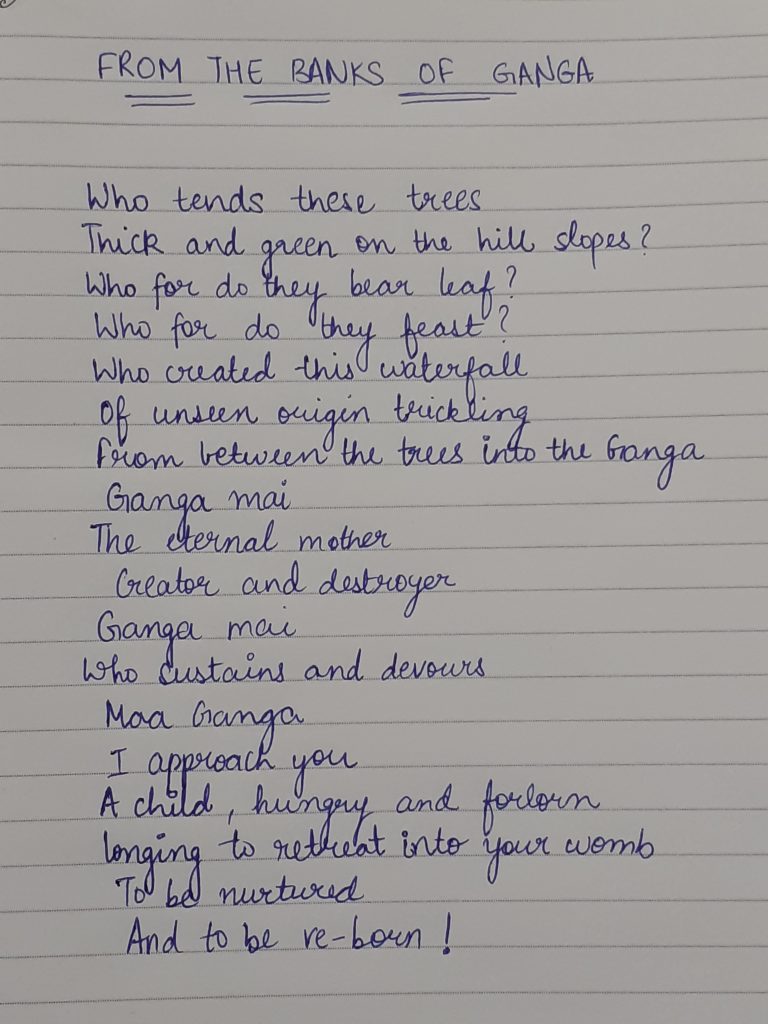 FROM THE BANKS OF GANGA
Who tends these trees
Thick and green on the hill slopes?
Who for do they bear leaf?
Who for do they feast?
Who created this waterfall
Of unseen origin trickling
From between the trees into the Ganga
Ganga mai
The eternal mother
Creator and destroyer
Ganga mai
Who sustains and devours
Maa Ganga
I approach you
A child, hungry and forlorn
longing to retreat into your womb
To be nurtured
And to be re-born!